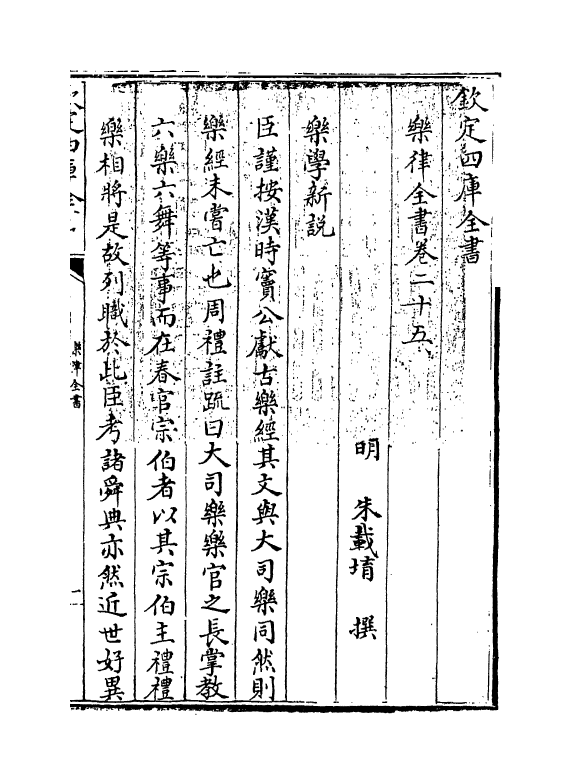 欽定四庫全書
樂律全書卷二十五
明 朱載堉 撰
樂學新説
臣謹按漢時竇公獻古樂經其文與大司樂同然則
樂經未嘗亡也周禮註疏曰大司樂樂官之長掌教
六樂六舞等事而在春官宗伯者以其宗伯主禮禮
樂相將是故列職於此臣考諸舜典亦然近世好異
欽定四庫全書
樂律全書
一